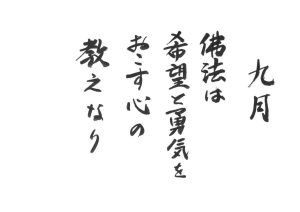 九月
佛法は
希望と勇気を
おこす心の
教えなり